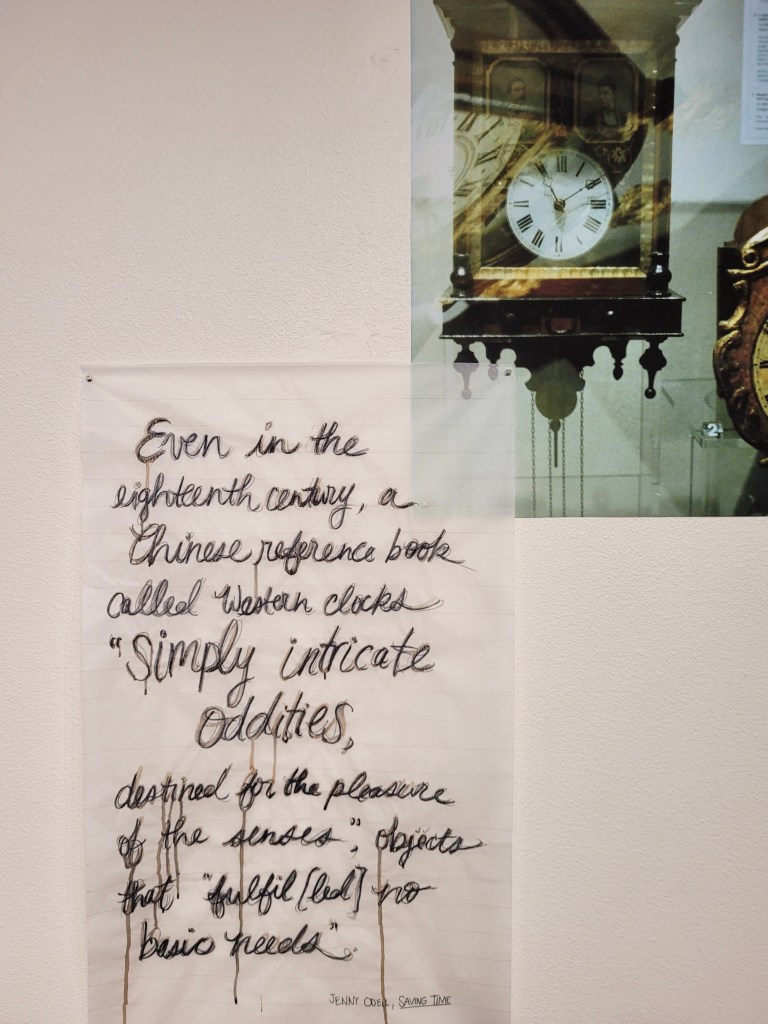 Even in the
eighteenth century, a
Chinese reference book
called Western clocks
"Simply intricate
oddities,
destined for the pleasure
of the senses", objects
that "fulfil[led] no
basic needs".
JENNY ODELL, SAVING TIME
2